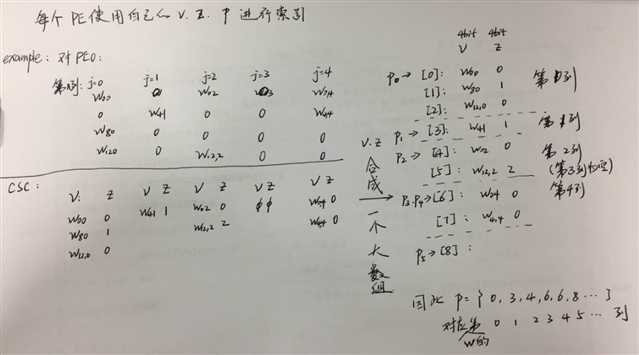 每个PE使用自己的 V. Z. P 进行索引
example: 对PE0:
第j列: j=0 j=1 j=2 j=3 j=4
W0,0 0 W0,2 0 W0,4
0 W4,1 0 0 W4,4
W8,0 0 0 0 0
W12,0 0 W12,2 0 0
CSC:
V: Z V Z V Z V Z V Z
W0,0 0 W4,1 1 W0,2 0 φ φ W0,4 0
W8,0 1 W12,2 2 W4,4 0
W12,0 0
V.Z
合
成
一
个
大
数
组
4bit 4bit
V Z
P0→ [0]: W0,0 0 第0列
[1]: W8,0 1
[2]: W12,0 0
P1→ [3]: W4,1 1 第1列
P2→ [4]: W0,2 0 第2列
[5]: W12,2 2 (第3列为空)
P3.P4→[6]: W0,4 0 第4列
[7]: W4,4 0
P5→[8]:
因此 P={0,3,4,6,6,8…}
对应第 0 1 2 3 4 5 … 列
W的